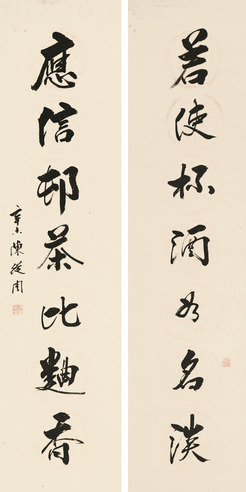 若使杯酒如名淡
應信邨茶比麯香
辛未陳從周